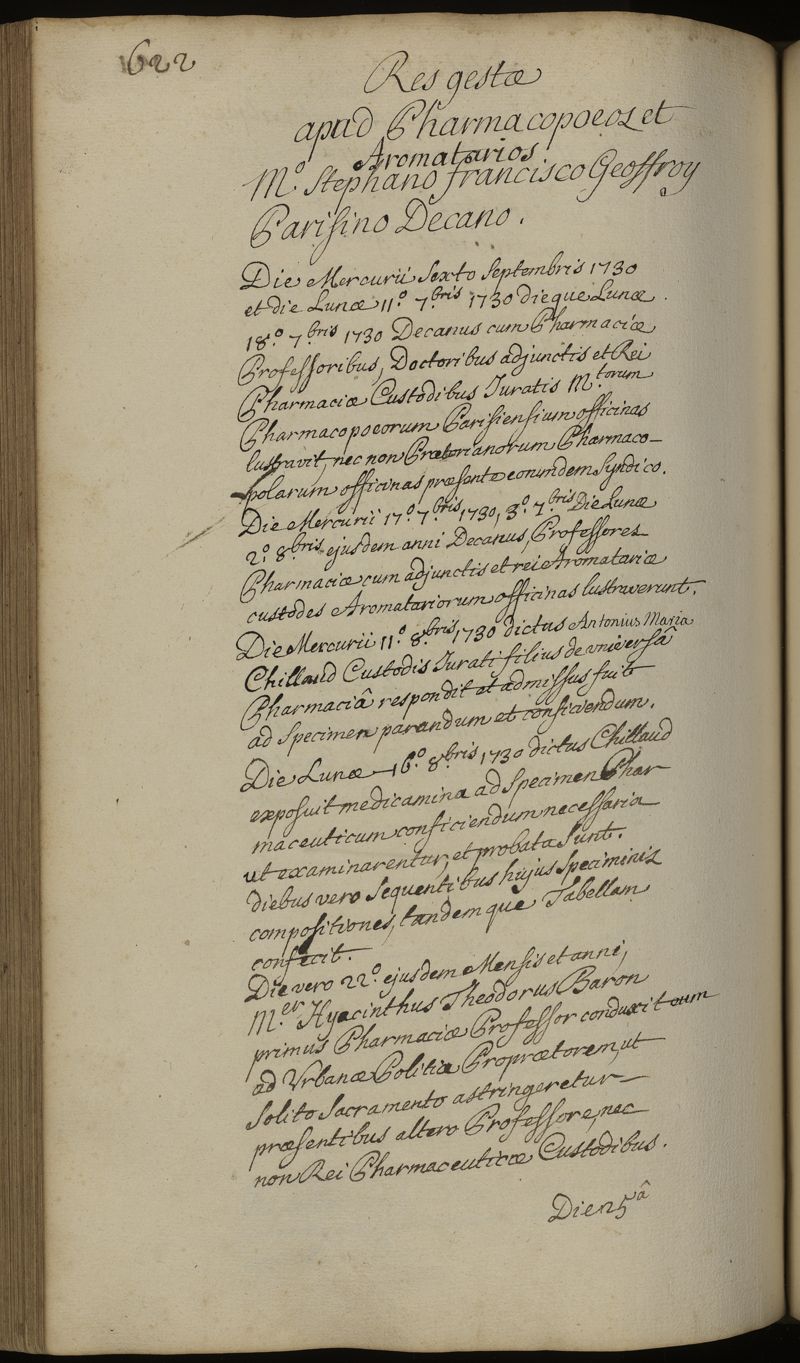 622
Res gestæ
apud Pharmacopoeos et
Aromatarios
M.º Stephano francisco Geoffroy
Parisino Decano.
Die Mercurii Sexto Septembris 1730
et die Lunæ 11.º 7.bris 1730 dieque Lunæ
18.º 7.bris 1730 Decanus cum Pharmaciæ
Professoribus, Doctoribus adjunctis et Rei
Pharmaciæ Custodibus Juratis M.torum
Pharmacopoeorum Parisiensium officinas
lustravit, nec non Prætorianorum Pharmaco-
polarum officinas præsente eorumdem Syndico.
Die Mercurii 17.º 7.bris 1730, 3.º 7.bris Die Lunæ
2.º 8.bris ejusdem anni Decanus, Professores
Pharmaciæ cum adjunctis et rei Aromatariæ
custodes Aromatariorum officinas lustraverunt.
Die Mercurii 11.º 8.bris 1730 dictus Antonius Maria
Chillaud Custodis Jurati filius de universâ
Pharmaciâ respondit et admissus fuit
ad Specimen parandum et conficiendum.
Die Lunæ 16.º 8.bris 1730 dictus Chillaud
exposuit medicamina ad Specimen Phar
maceuticum conficiendum necessaria
ut examinarentur, et probata Sunt.
diebus vero Sequentibus hujus Speciminis
compositiones, tandemque Tabellam
confecit.
Die vero 22.º ejusdem Mensis et anni,
M.er Hyacinthus Theodorus Baron
primus Pharmaciæ Professor conduxit eum
ad Urbanæ Politiæ Proprætorem, ut
Solito Sacramento astringeretur
præsentibus altero Professore, nec
non Rei Pharmaceuticæ Custodibus.
Die 25â